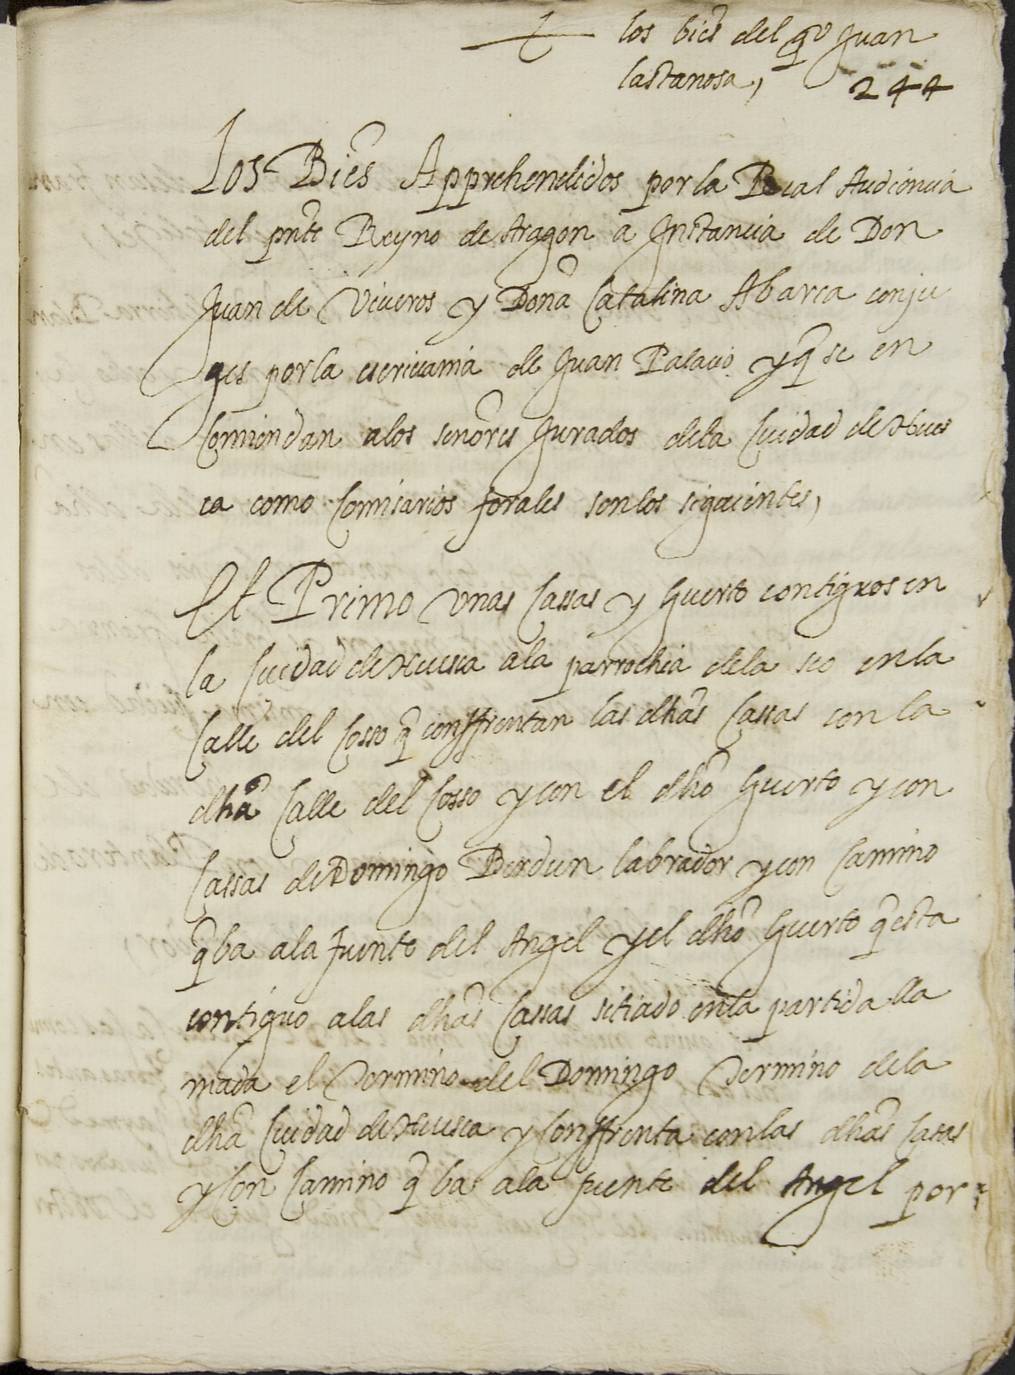 los bies del q.º Juan
lastanosa,
244
Los Bies Apprehendidos por la Real Audiencia
del pnte Reyno de Aragon a Instancia de Don
Juan de Viueros y Dona Catalina Abarca conju
ges por la escriuania de Juan Palacio y q se en
Comiendan a los senores Jurados dela Ciudad de Hues
ca como Comisarios forales son los siguientes,
Et Primo vnas Cassas y Guerto contiguos en
la Ciudad de Huesca a la parrochia dela seo en la
Calle del Cosso q conffrentan las dhas Cassas con la
dha Calle del Cosso y con el dho Guerto y con
Cassas de Domingo Berdun labrador y con Camino
q ba a la fuente del Angel y el dho Guerto q esta
contiguo a las dhas Cassas sitiado en la partida lla
mada el Termino del Domingo Termino dela
dha Ciudad de Huesca y Conffrenta con las dhas Casas
y Con Camino q ba a la fuente del Angel por